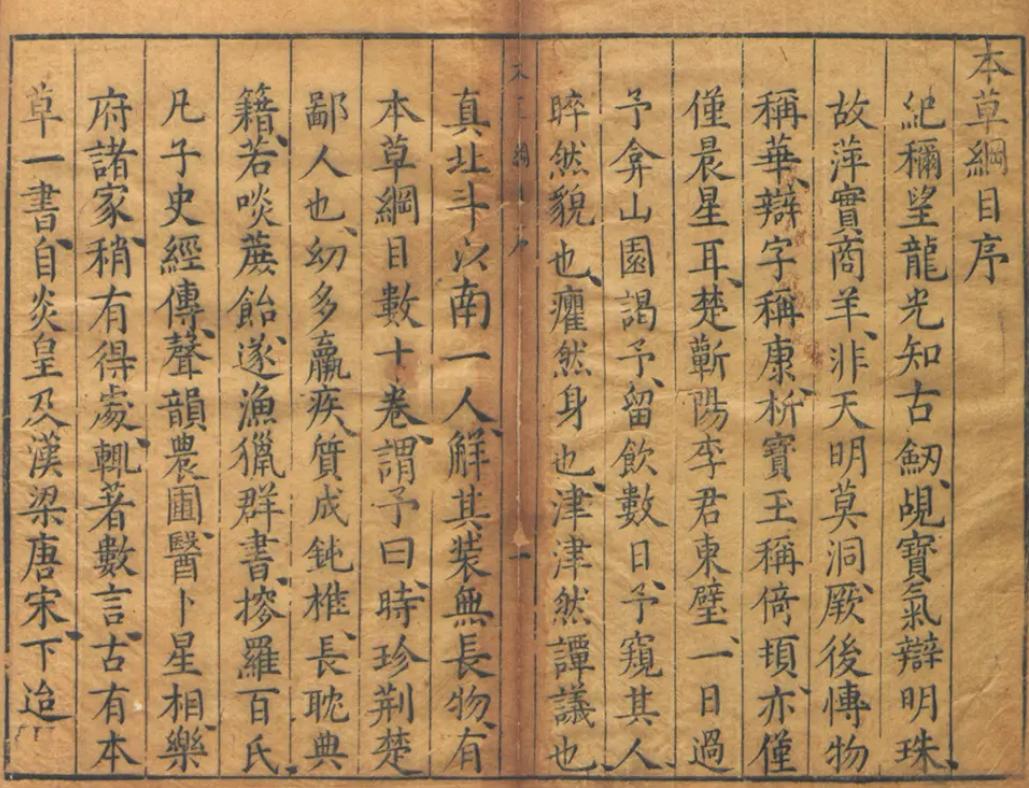 本草綱目序
紀稱望龍光知古劒覘寶氣辯明珠
故萍實商羊非天明莫洞厥後愽物
稱華辯字稱康析寶玉稱倚頓亦僅
僅晨星耳楚蘄陽李君東璧一日過
予弇山園謁予留飲數日予窺其人
睟然貌也癯然身也津津然譚議也
真北斗以南一人觧其裝無長物有
本草綱目數十卷謂予曰時珍荆楚
鄙人也㓜多羸疾質成鈍椎長耽典
籍若啖蔗飴遂漁獵群書搜羅百氏
凡子史經傳聲韻農圃醫卜星相樂
府諸家稍有得處輒著數言古有本
草一書自炎皇及漢梁唐宋下迨